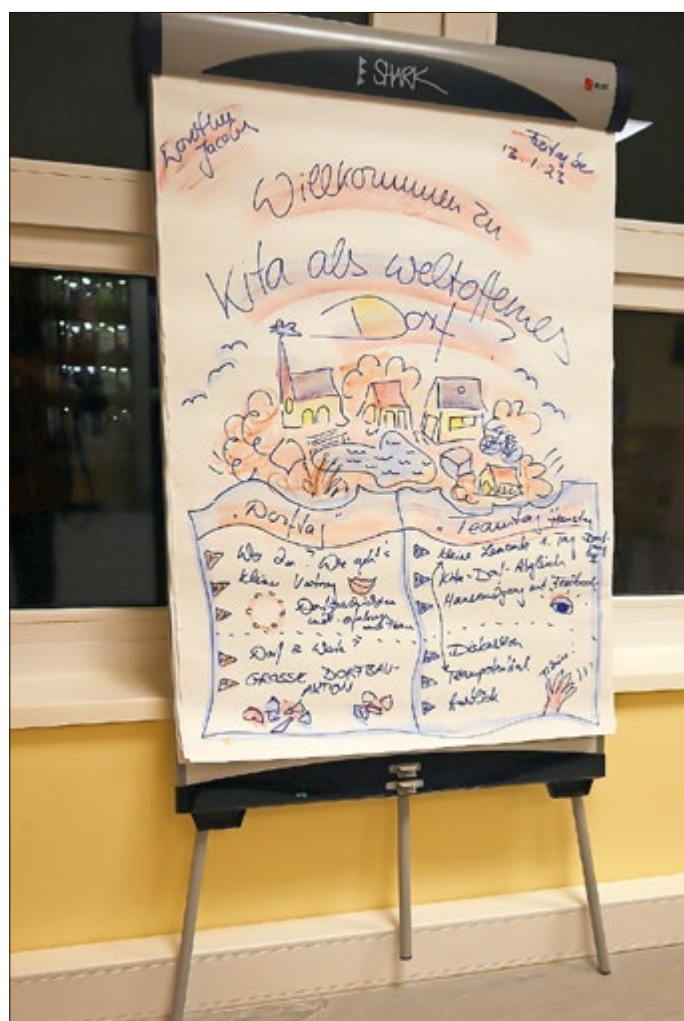 SHARK
Dorothee
Jacobs
Freitag
13.1.23
Willkommen zu
Kita als weltoffenes
Dorf
"Dorftag"
Wer da? Wie geht's
kleiner Vortrag
Dorfgeschichten
und
Dorf & Werk?
GROSSE DORFBAU-
AKTION
"Teamtag
kleine Leseunde 1. Tag Dorf-
Kita-Dorf-Abgleich
Hausrundgang mit Feedback
Diskussion
Teampotential
Ausblick
Tschüss!